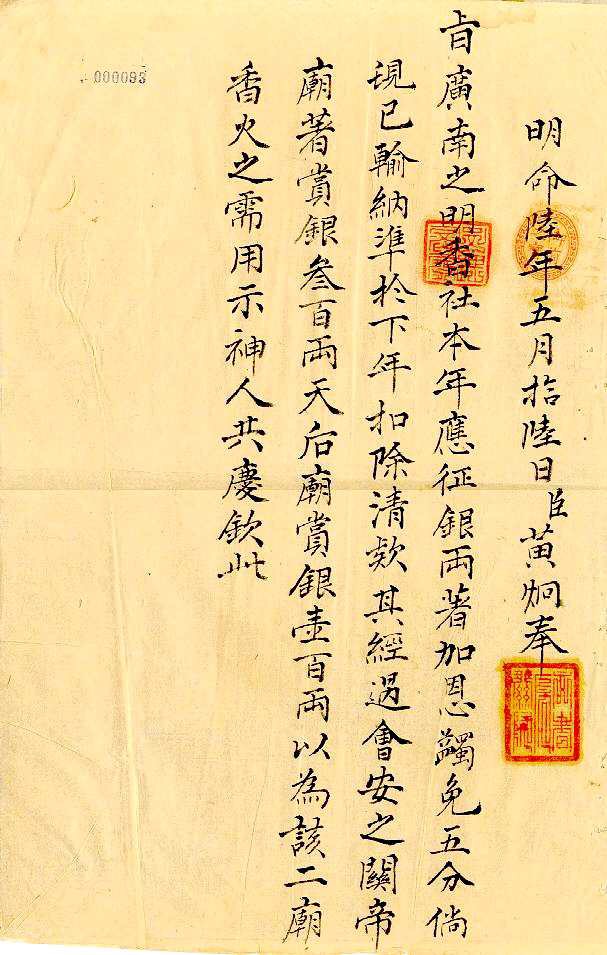 明命陸年五月拾陸日臣黄炯奉
旨廣南之明香社本年應征銀両著加恩蠲免五分倘
現已輸納準扵下年扣除清欵其經過會安之關帝
廟著賞銀叁百両天后廟賞銀壹百両以為該二廟
香火之需用示神人共慶欽此
000093